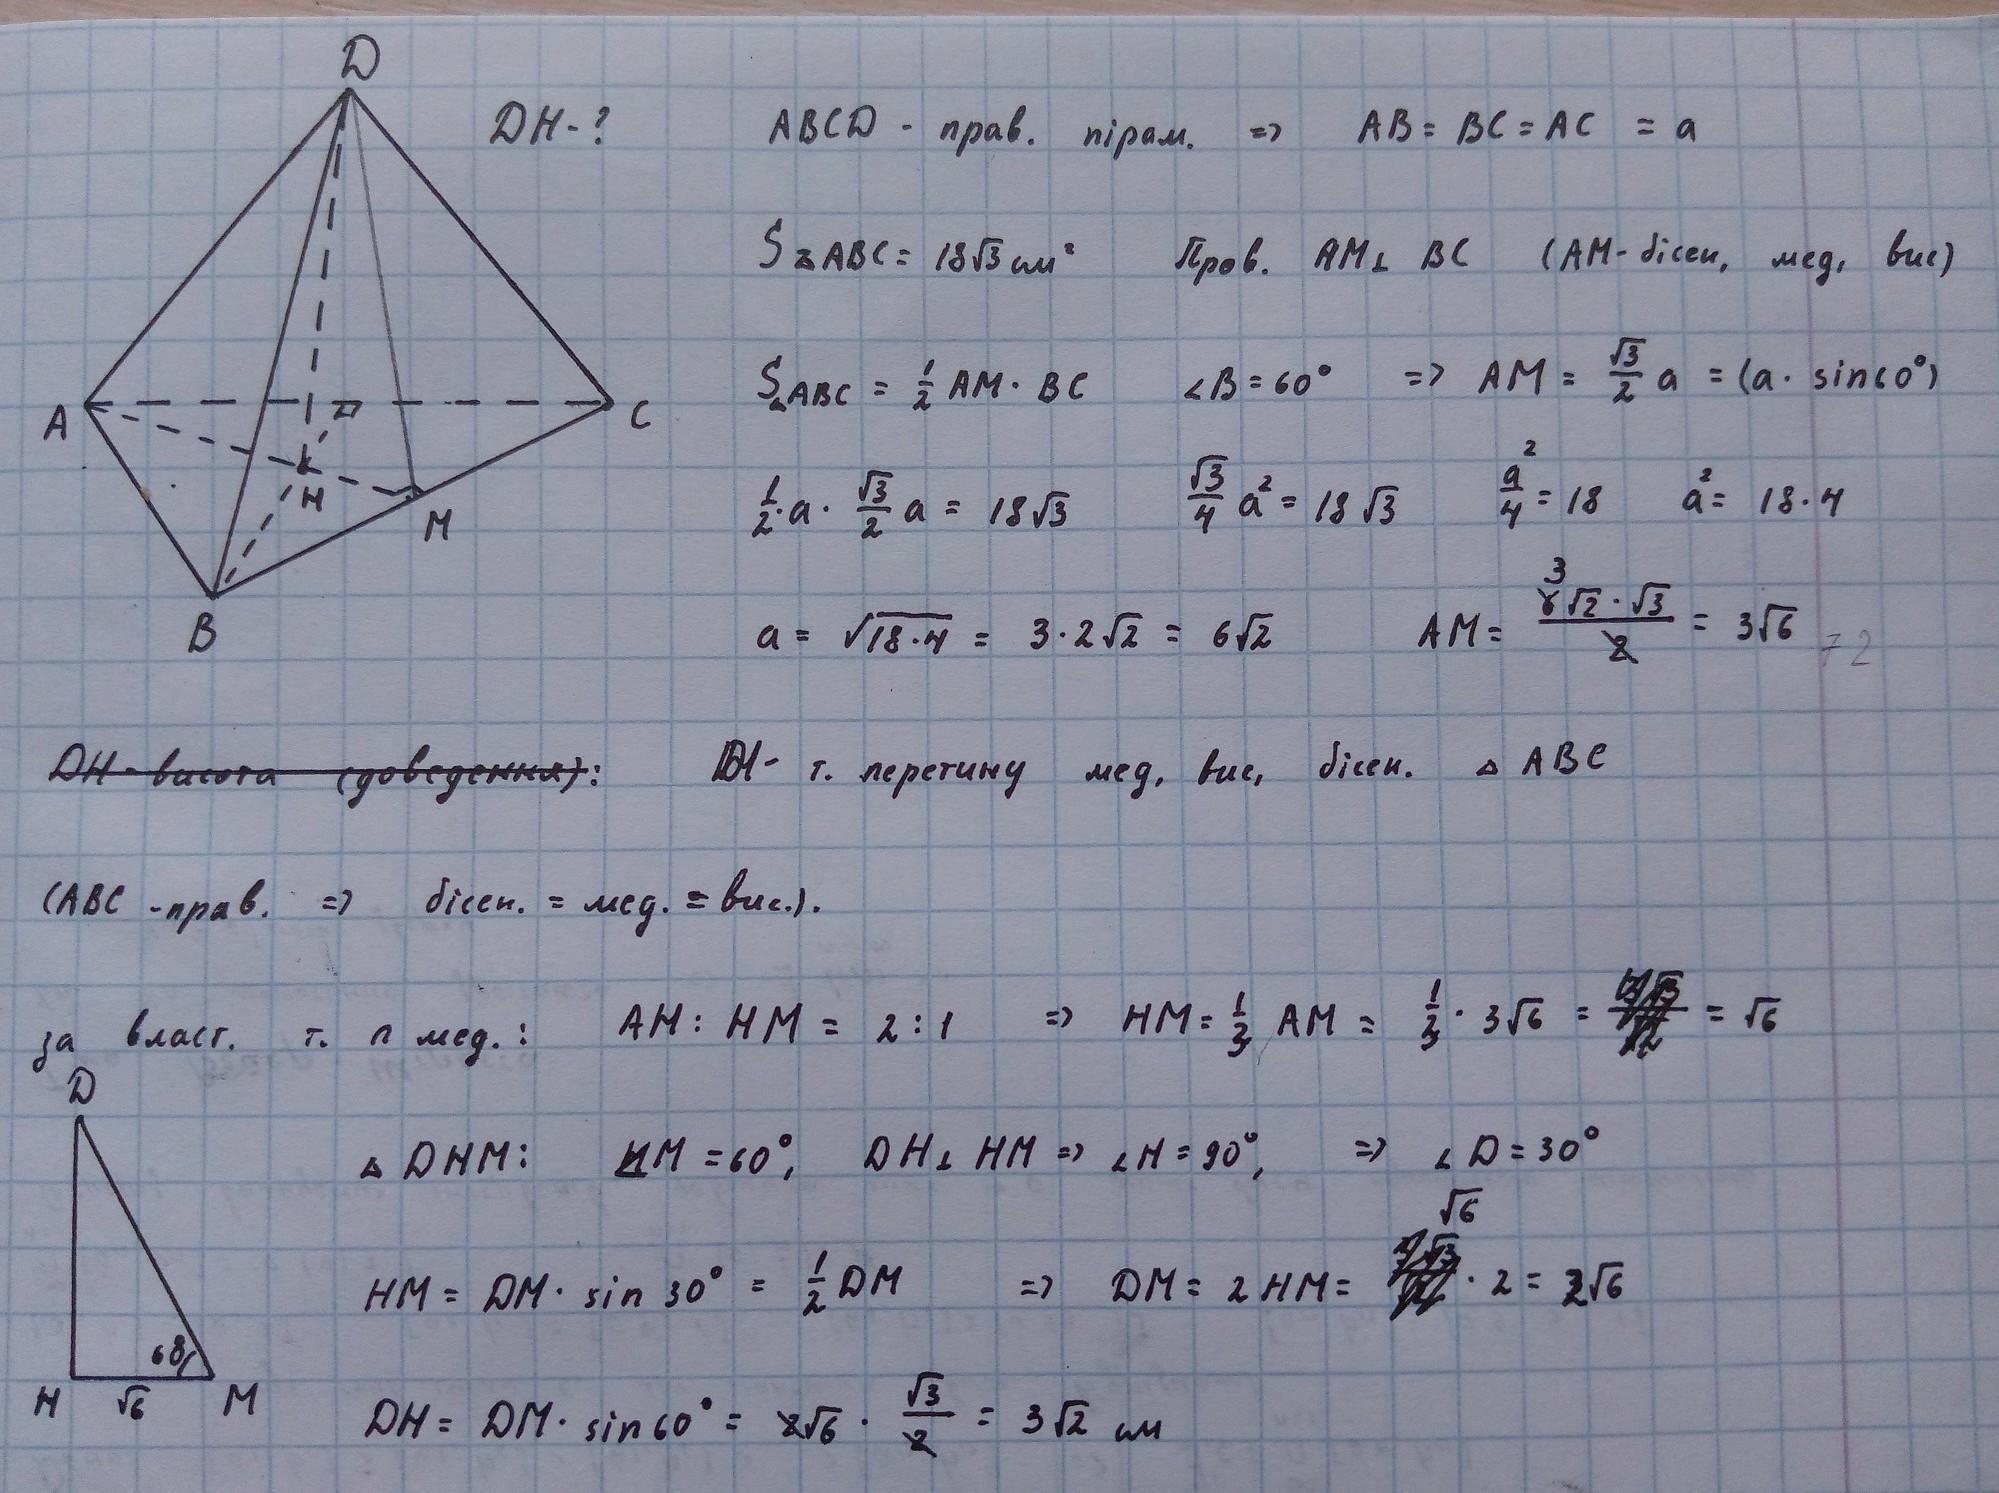 D
DH - ? ABCD - прав. пірам. => AB = BC = AC = a
S△ABC = 18√3 см² Пров. AM⊥ BC (AM - бісек, мед, вис)
S△ABC = 1/2 AM · BC ∠B = 60° => AM = √3/2 a = (a · sin60°)
A C
H M
1/2 · a · √3/2 a = 18√3 √3/4 a² = 18√3 a²/4 = 18 a² = 18·4
B
a = √18·4 = 3·2√2 = 6√2 AM = 6√2·√3/2 = 3√6 72
3
DH - висота (доведення): H - т. перетину мед, вис, бісек. △ ABC
(ABC - прав. => бісек. = мед. = вис.).
за власт. т. п мед.: AH : HM = 2 : 1 => HM = 1/3 AM = 1/3 · 3√6 = = √6
D
△ DHM: ∠M = 60°, DH⊥ HM => ∠H = 90°, => ∠D = 30°
√6
HM = DM · sin 30° = 1/2 DM => DM = 2 HM = · 2 = 2√6
60°
H √6 M
DH = DM · sin60° = 2√6 · √3/2 = 3√2 см